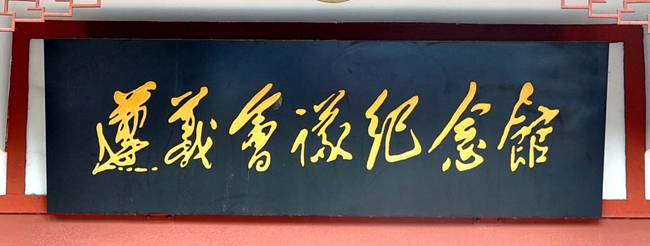 遵義會議紀念館